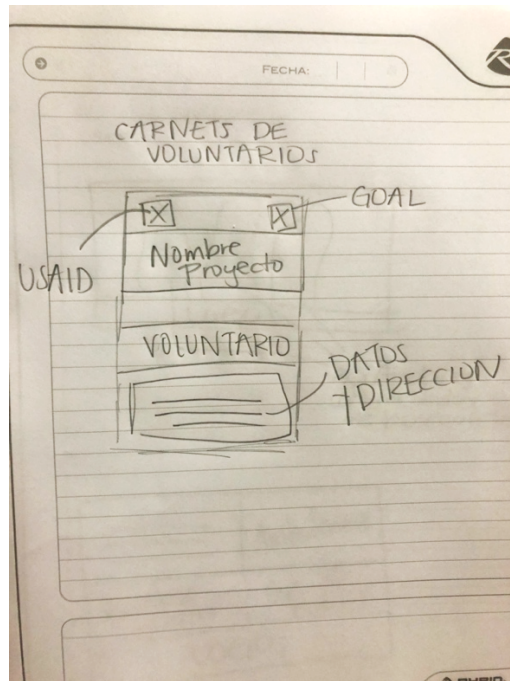 FECHA:
CARNETS DE
VOLUNTARIOS
GOAL
USAID
Nombre
Proyecto
VOLUNTARIO
DATOS
Y DIRECCION